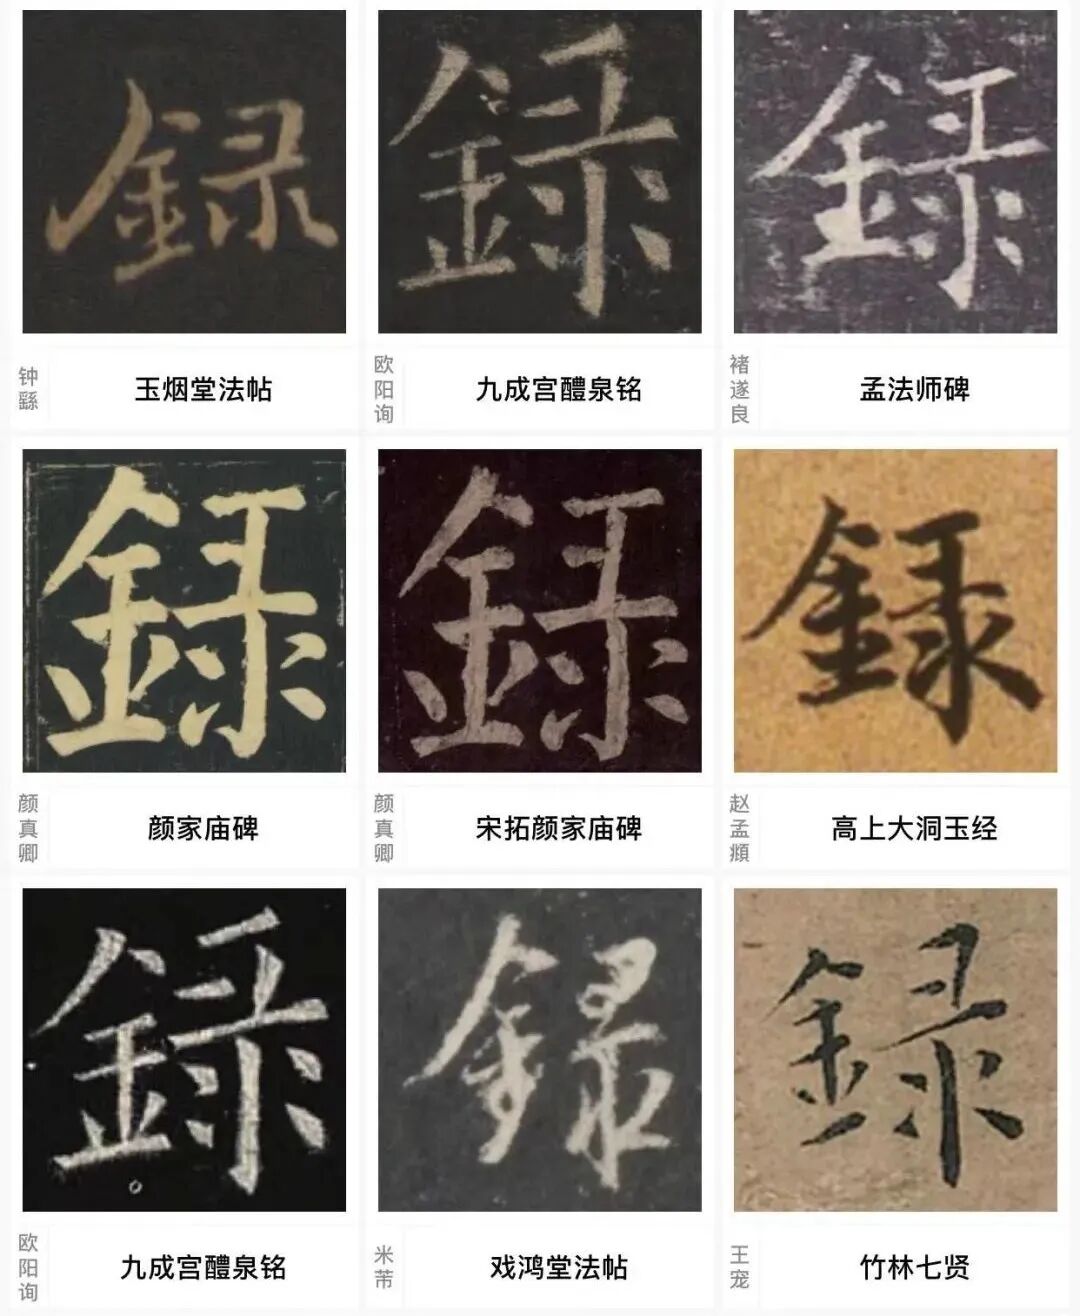 録 録 録
钟繇 玉烟堂法帖 欧阳询 九成宫醴泉铭 褚遂良 孟法师碑
録 録 録
颜真卿 颜家庙碑 颜真卿 宋拓颜家庙碑 赵孟頫 高上大洞玉经
録 録 録
欧阳询 九成宫醴泉铭 米芾 戏鸿堂法帖 王宠 竹林七贤